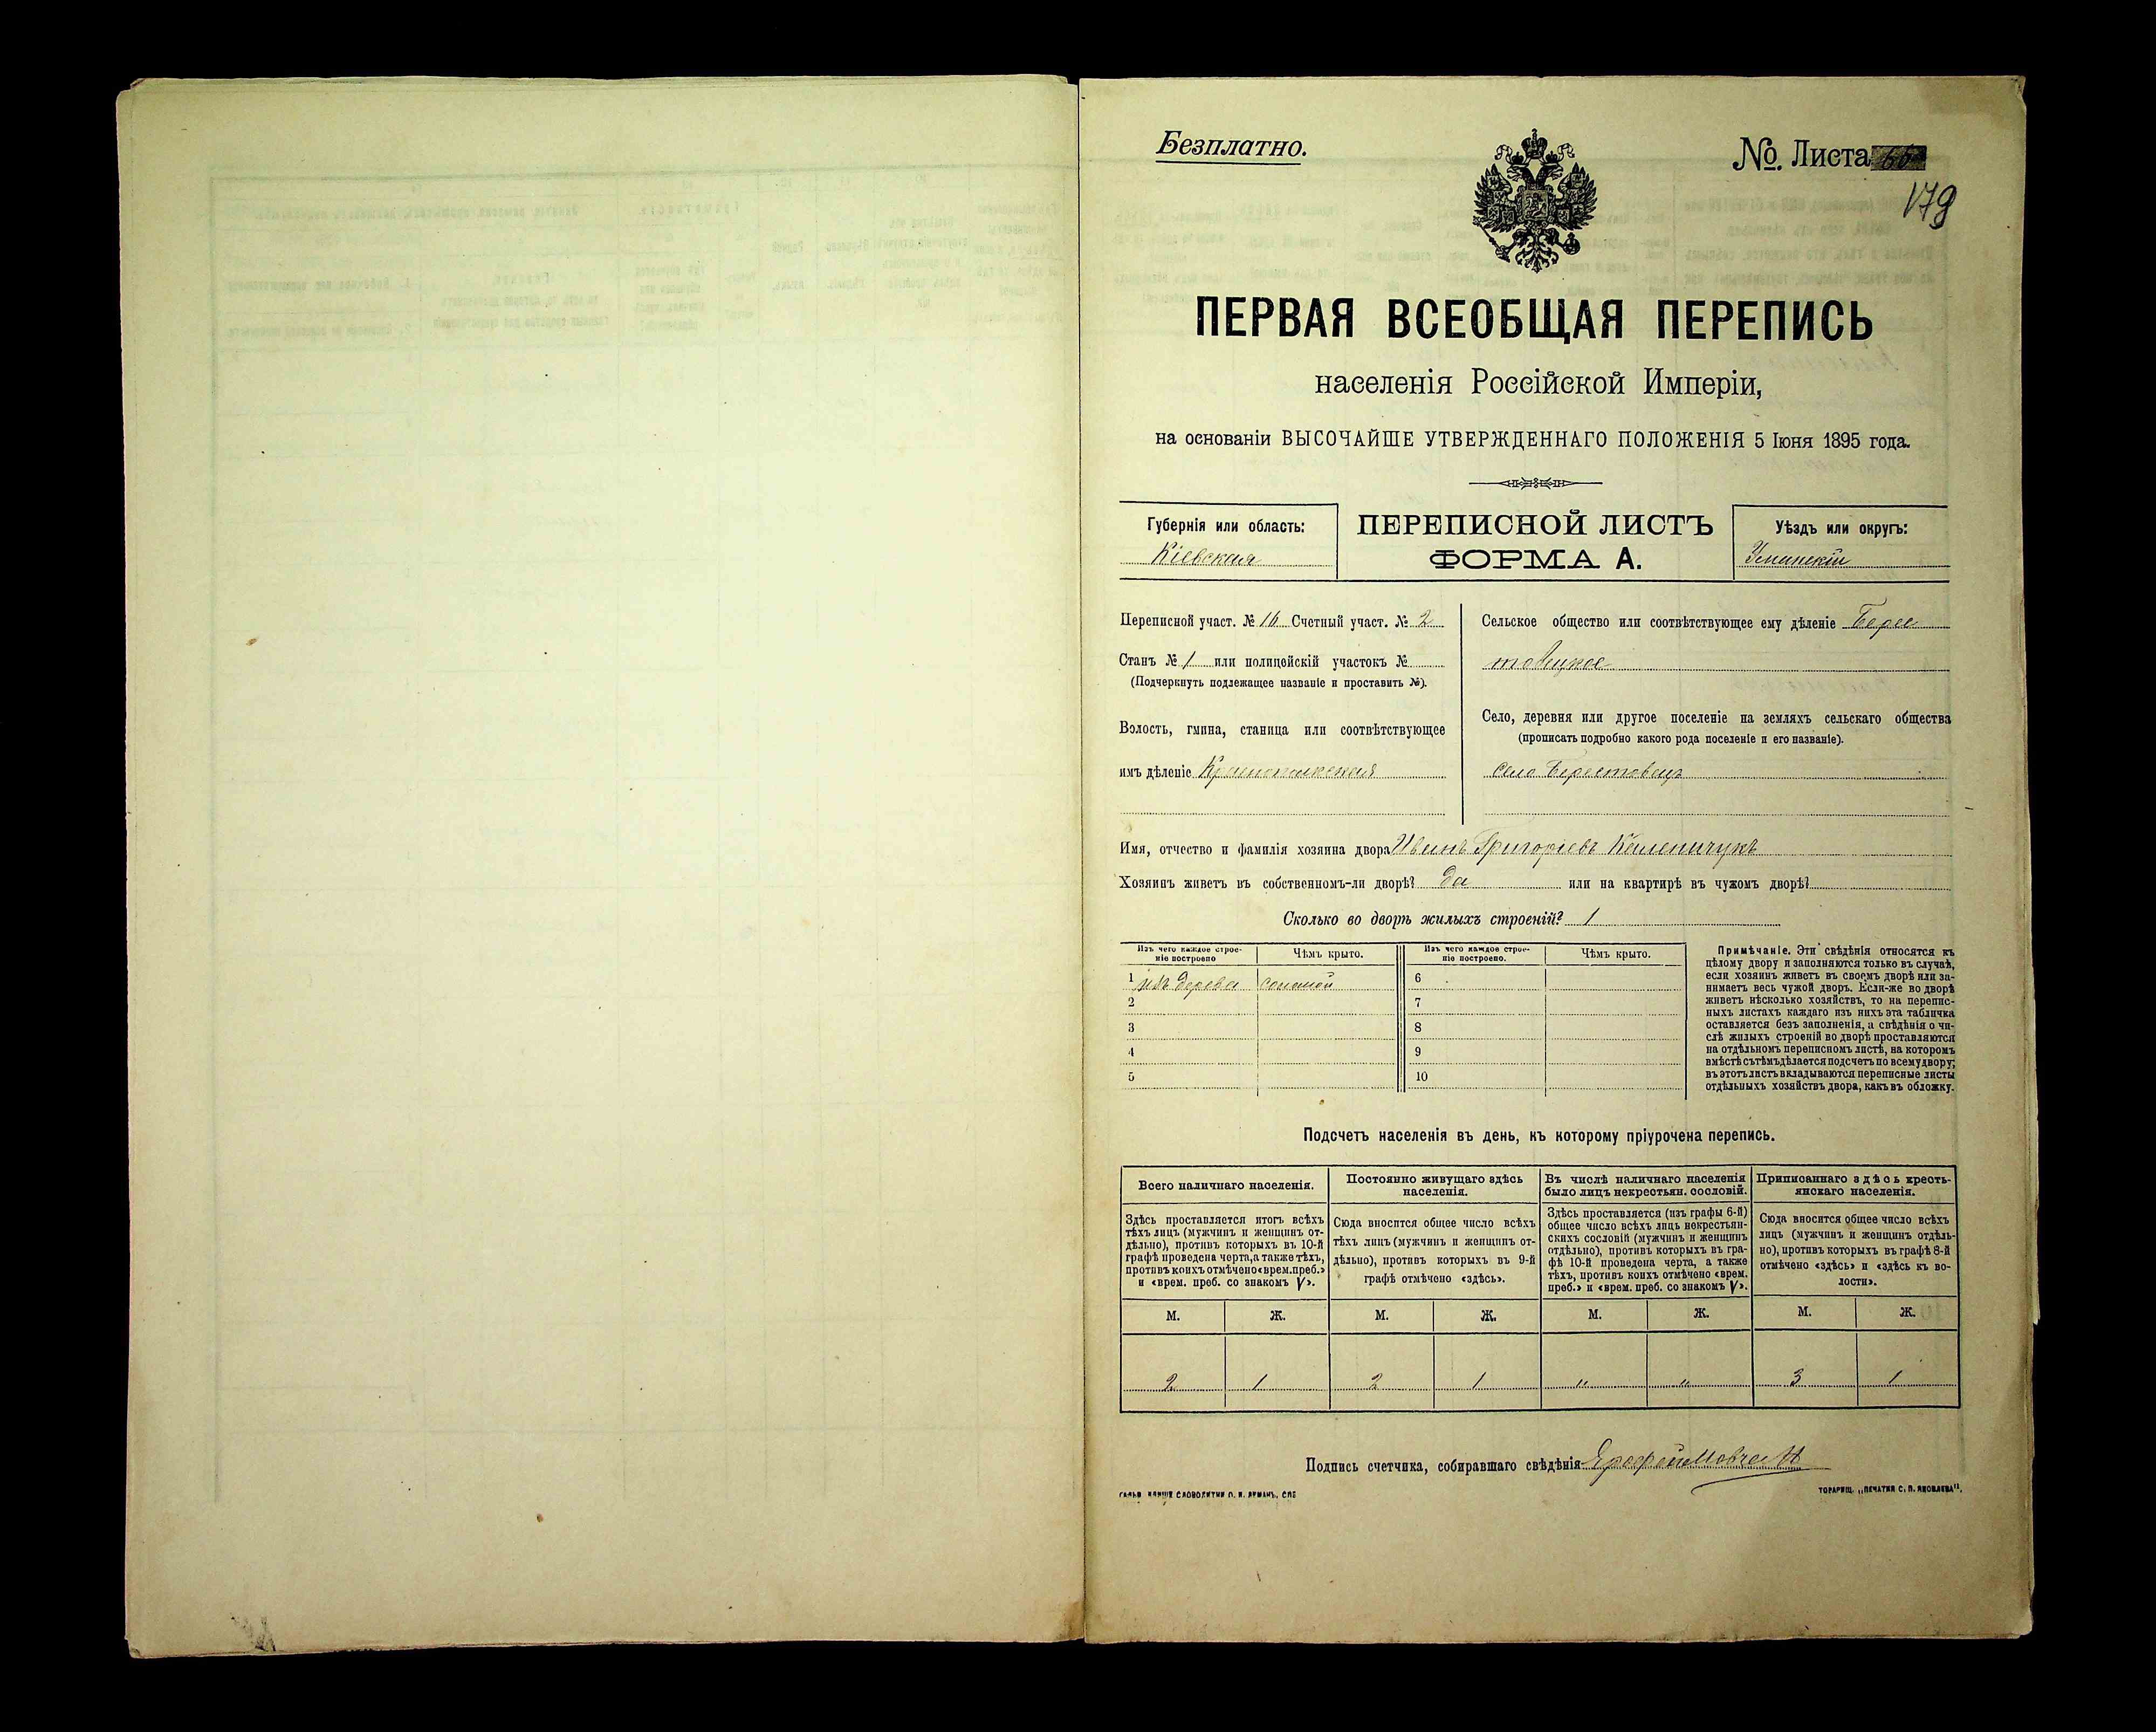 Безплатно.
№ Листа 60
179
ПЕРВАЯ ВСЕОБЩАЯ ПЕРЕПИСЬ
населенія Россійской Имперіи,
на основаніи ВЫСОЧАЙШЕ УТВЕРЖДЕННАГО ПОЛОЖЕНІЯ 5 Іюня 1895 года.
Губернія или область:
Кіевская
ПЕРЕПИСНОЙ ЛИСТЪ
ФОРМА А.
Уѣздъ или округъ:
Уманскій
Переписной участ. № 16 Счетный участ. № 2
Станъ № 1 или полицейскій участокъ №
(Подчеркнуть подлежащее названіе и проставить №).
Волость, гмина, станица или соотвѣтствующее
имъ дѣленіе Краснопольская
Сельское общество или соотвѣтствующее ему дѣленіе Берес
товецкое
Село, деревня или другое поселеніе на земляхъ сельскаго общества
(прописать подробно какого рода поселеніе и его названіе).
село Берестовецъ
Имя, отчество и фамилія хозяина двора Иванъ Григорьевъ Каленичукъ
Хозяинъ живетъ въ собственномъ-ли дворѣ? да или на квартирѣ въ чужомъ дворѣ?
Сколько во дворѣ жилыхъ строеній? 1
Изъ чего каждое строе-
ніе построено
Чѣмъ крыто.
Изъ чего каждое строе-
ніе построено.
Чѣмъ крыто.
1 изъ дерева соломой
2
3
4
5
6
7
8
9
10
Примѣчаніе. Эти свѣдѣнія относятся къ
цѣлому двору и заполняются только въ случаѣ,
если хозяинъ живетъ въ своемъ дворѣ или за-
нимаетъ весь чужой дворъ. Если-же во дворѣ
живетъ нѣсколько хозяйствъ, то на перепис-
ныхъ листахъ каждаго изъ нихъ эта табличка
оставляется безъ заполненія, а свѣдѣнія о чи-
слѣ жилыхъ строеній во дворѣ проставляются
на отдѣльномъ переписномъ листѣ, на которомъ
вмѣстѣ съ тѣмъ дѣлается подсчетъ по всему двору;
въ этотъ листъ вкладываются переписные листы
отдѣльныхъ хозяйствъ двора, какъ въ обложку.
Подсчетъ населенія въ день, къ которому пріурочена перепись.
Всего наличнаго населенія.
Здѣсь проставляется итогъ всѣхъ
тѣхъ лицъ (мужчинъ и женщинъ от-
дѣльно), противъ которыхъ въ 10-й
графѣ проведена черта, а также тѣхъ,
противъ коихъ отмѣчено «врем. преб.»
и «врем. преб. со знакомъ V».
Постоянно живущаго здѣсь
населенія.
Сюда вносится общее число всѣхъ
тѣхъ лицъ (мужчинъ и женщинъ от-
дѣльно), противъ которыхъ въ 9-й
графѣ отмѣчено «здѣсь».
Въ числѣ наличнаго населенія
было лицъ некрестьян. сословій.
Здѣсь проставляется (изъ графы 6-й)
общее число всѣхъ лицъ некрестьян-
скихъ сословій (мужчинъ и женщинъ
отдѣльно), противъ которыхъ въ гра-
фѣ 10-й проведена черта, а также
тѣхъ, противъ коихъ отмѣчено «врем.
преб.» и «врем. преб. со знакомъ V».
Приписаннаго здѣсь кресть-
янскаго населенія.
Сюда вносится общее число всѣхъ
лицъ (мужчинъ и женщинъ отдѣль-
но), противъ которыхъ въ графѣ 8-й
отмѣчено «здѣсь» и «здѣсь къ во-
лости».
М. Ж. М. Ж. М. Ж. М. Ж.
2 1 2 1 " " 3 1
Подпись счетчика, собиравшаго свѣдѣнія Ярофей Мовчан
ТОВАРИЩ. „ПЕЧАТНЯ С. П. ЯКОВЛЕВА".